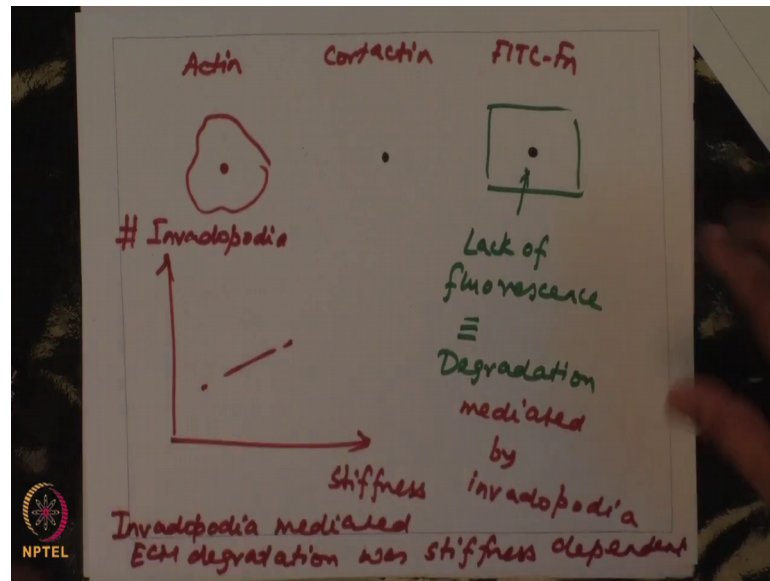 Actin Cortactin FITC-Fn
# Invadopodia
Stiffness
Lack of
fluorescence
≡
Degradation
mediated
by
invadopodia
Invadopodia mediated
ECM degradation was stiffness dependent
NPTEL